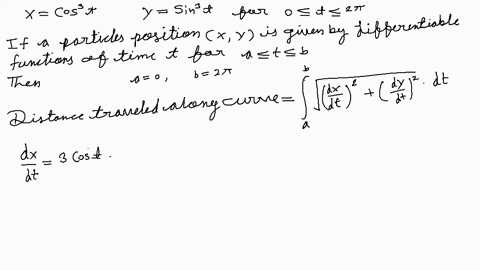 x = Cos³t   y = Sin³t for 0 ≤ t ≤ 2π
If a particles position (x, y) is given by differentiable
functions of time t for a ≤ t ≤ b
Then   a = 0,   b = 2π
Distance traveled along curve = ∫ₐᵇ √((dx/dt)² + (dy/dt)²) · dt
dx/dt = 3 Cost .